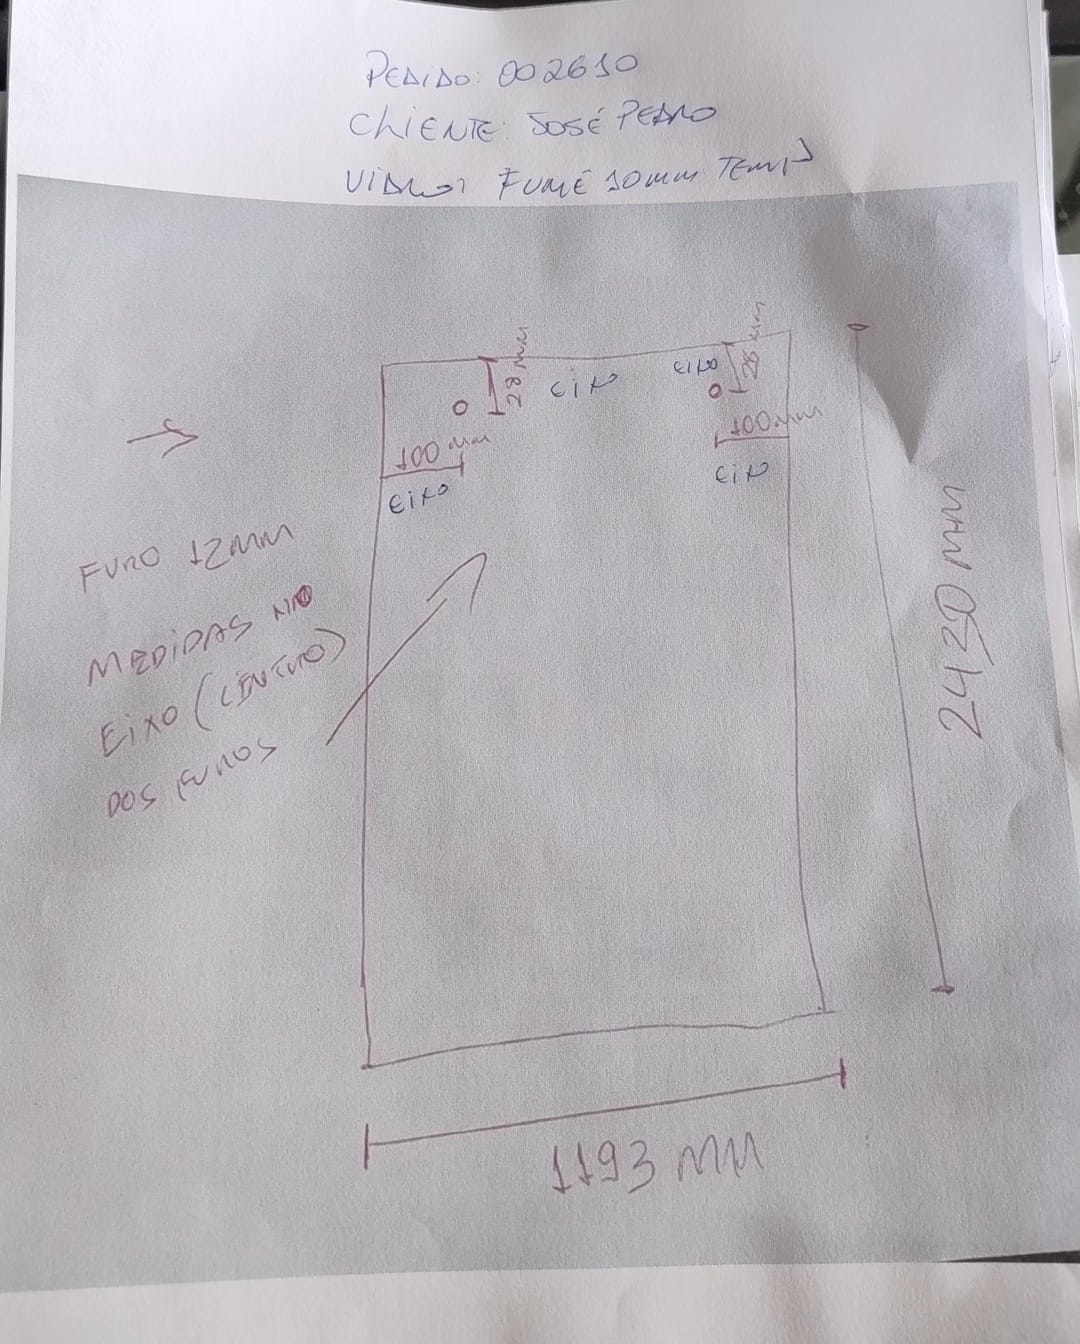 PEDIDO: 002610
CLIENTE: JOSÉ PEDRO
VIDRO: FUMÊ 10mm TEMP
28 MM
EIXO
EIXO
28 MM
100 MM
EIXO
100 MM
EIXO
FURO 12MM
MEDIDAS NO
EIXO (CENTRO)
DOS FUROS
MM
1193 MM